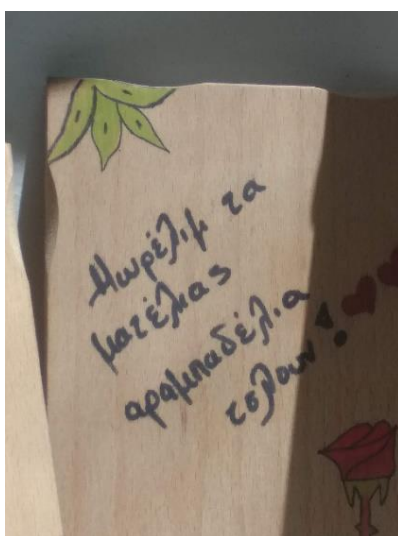 Μωρέλιμ τα
ματέλιας
αραμπαδέλια
τσλουν!